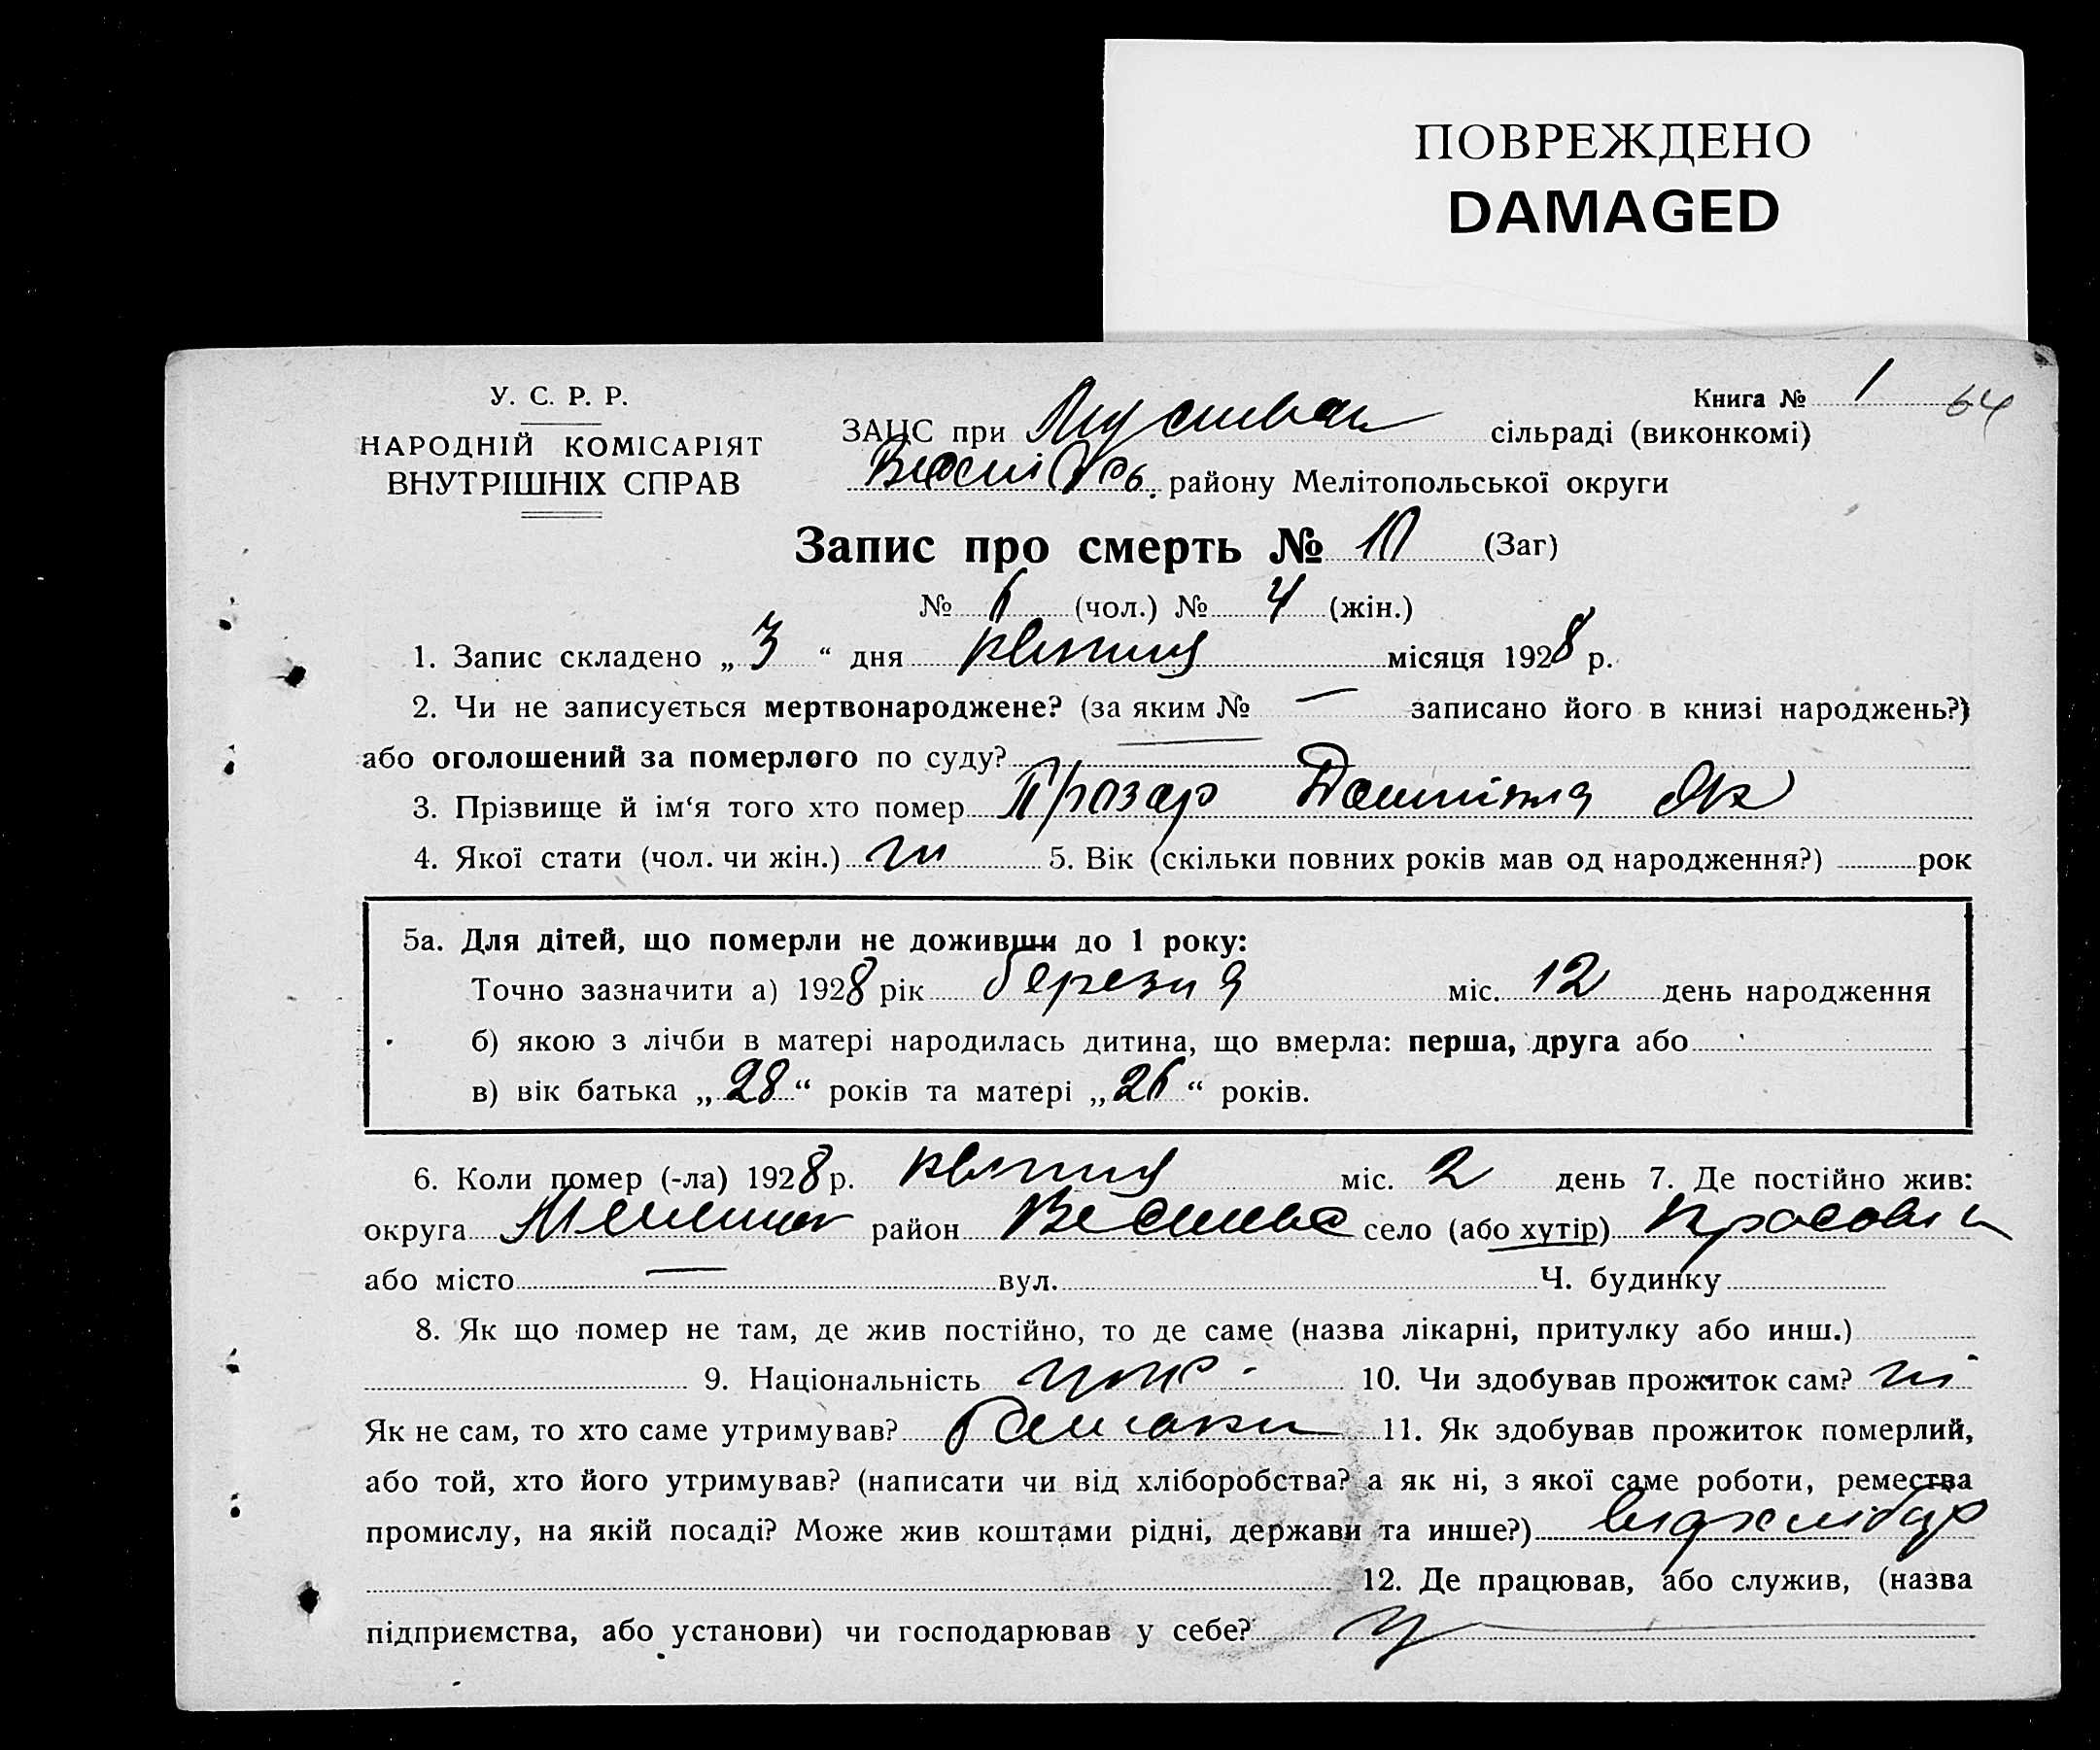 ПОВРЕЖДЕНО
DAMAGED
У. С. Р. Р.
НАРОДНІЙ КОМІСАРІЯТ
ВНУТРІШНІХ СПРАВ
Книга № 1 64
ЗАЦС при сільраді (виконкомі)
району Мелітопольської округи
Запис про смерть № 10 (Заг)
№ 6 (чол.) № 4 (жін.)
1. Запис складено „ 3 “ дня квітня місяця 1928 р.
2. Чи не записується мертвонароджене? (за яким № — записано його в книзі народжень?)
або оголошений за померлого по суду?
3. Прізвище й ім‘я того хто помер
4. Якої стати (чол. чи жін.) 5. Вік (скільки повних років мав од народження?) рок
5а. Для дітей, що померли не доживши до 1 року:
Точно зазначити а) 1928 рік березня міс. 12 день народження
б) якою з лічби в матері народилась дитина, що вмерла: перша, друга або
в) вік батька „ 28 “ років та матері „ 26 “ років.
6. Коли помер (-ла) 1928 р. квітня міс. 2 день 7. Де постійно жив:
округа район село (або хутір)
або місто — вул. Ч. будинку
8. Як що помер не там, де жив постійно, то де саме (назва лікарні, притулку або инш.)
9. Національність укр 10. Чи здобував прожиток сам? ні
Як не сам, то хто саме утримував? батьки 11. Як здобував прожиток померлий,
або той, хто його утримував? (написати чи від хліборобства? а як ні, з якої саме роботи, ремества
промислу, на якій посаді? Може жив коштами рідні, держави та инше?)
12. Де працював, або служив, (назва
підприємства, або установи) чи господарював у себе?